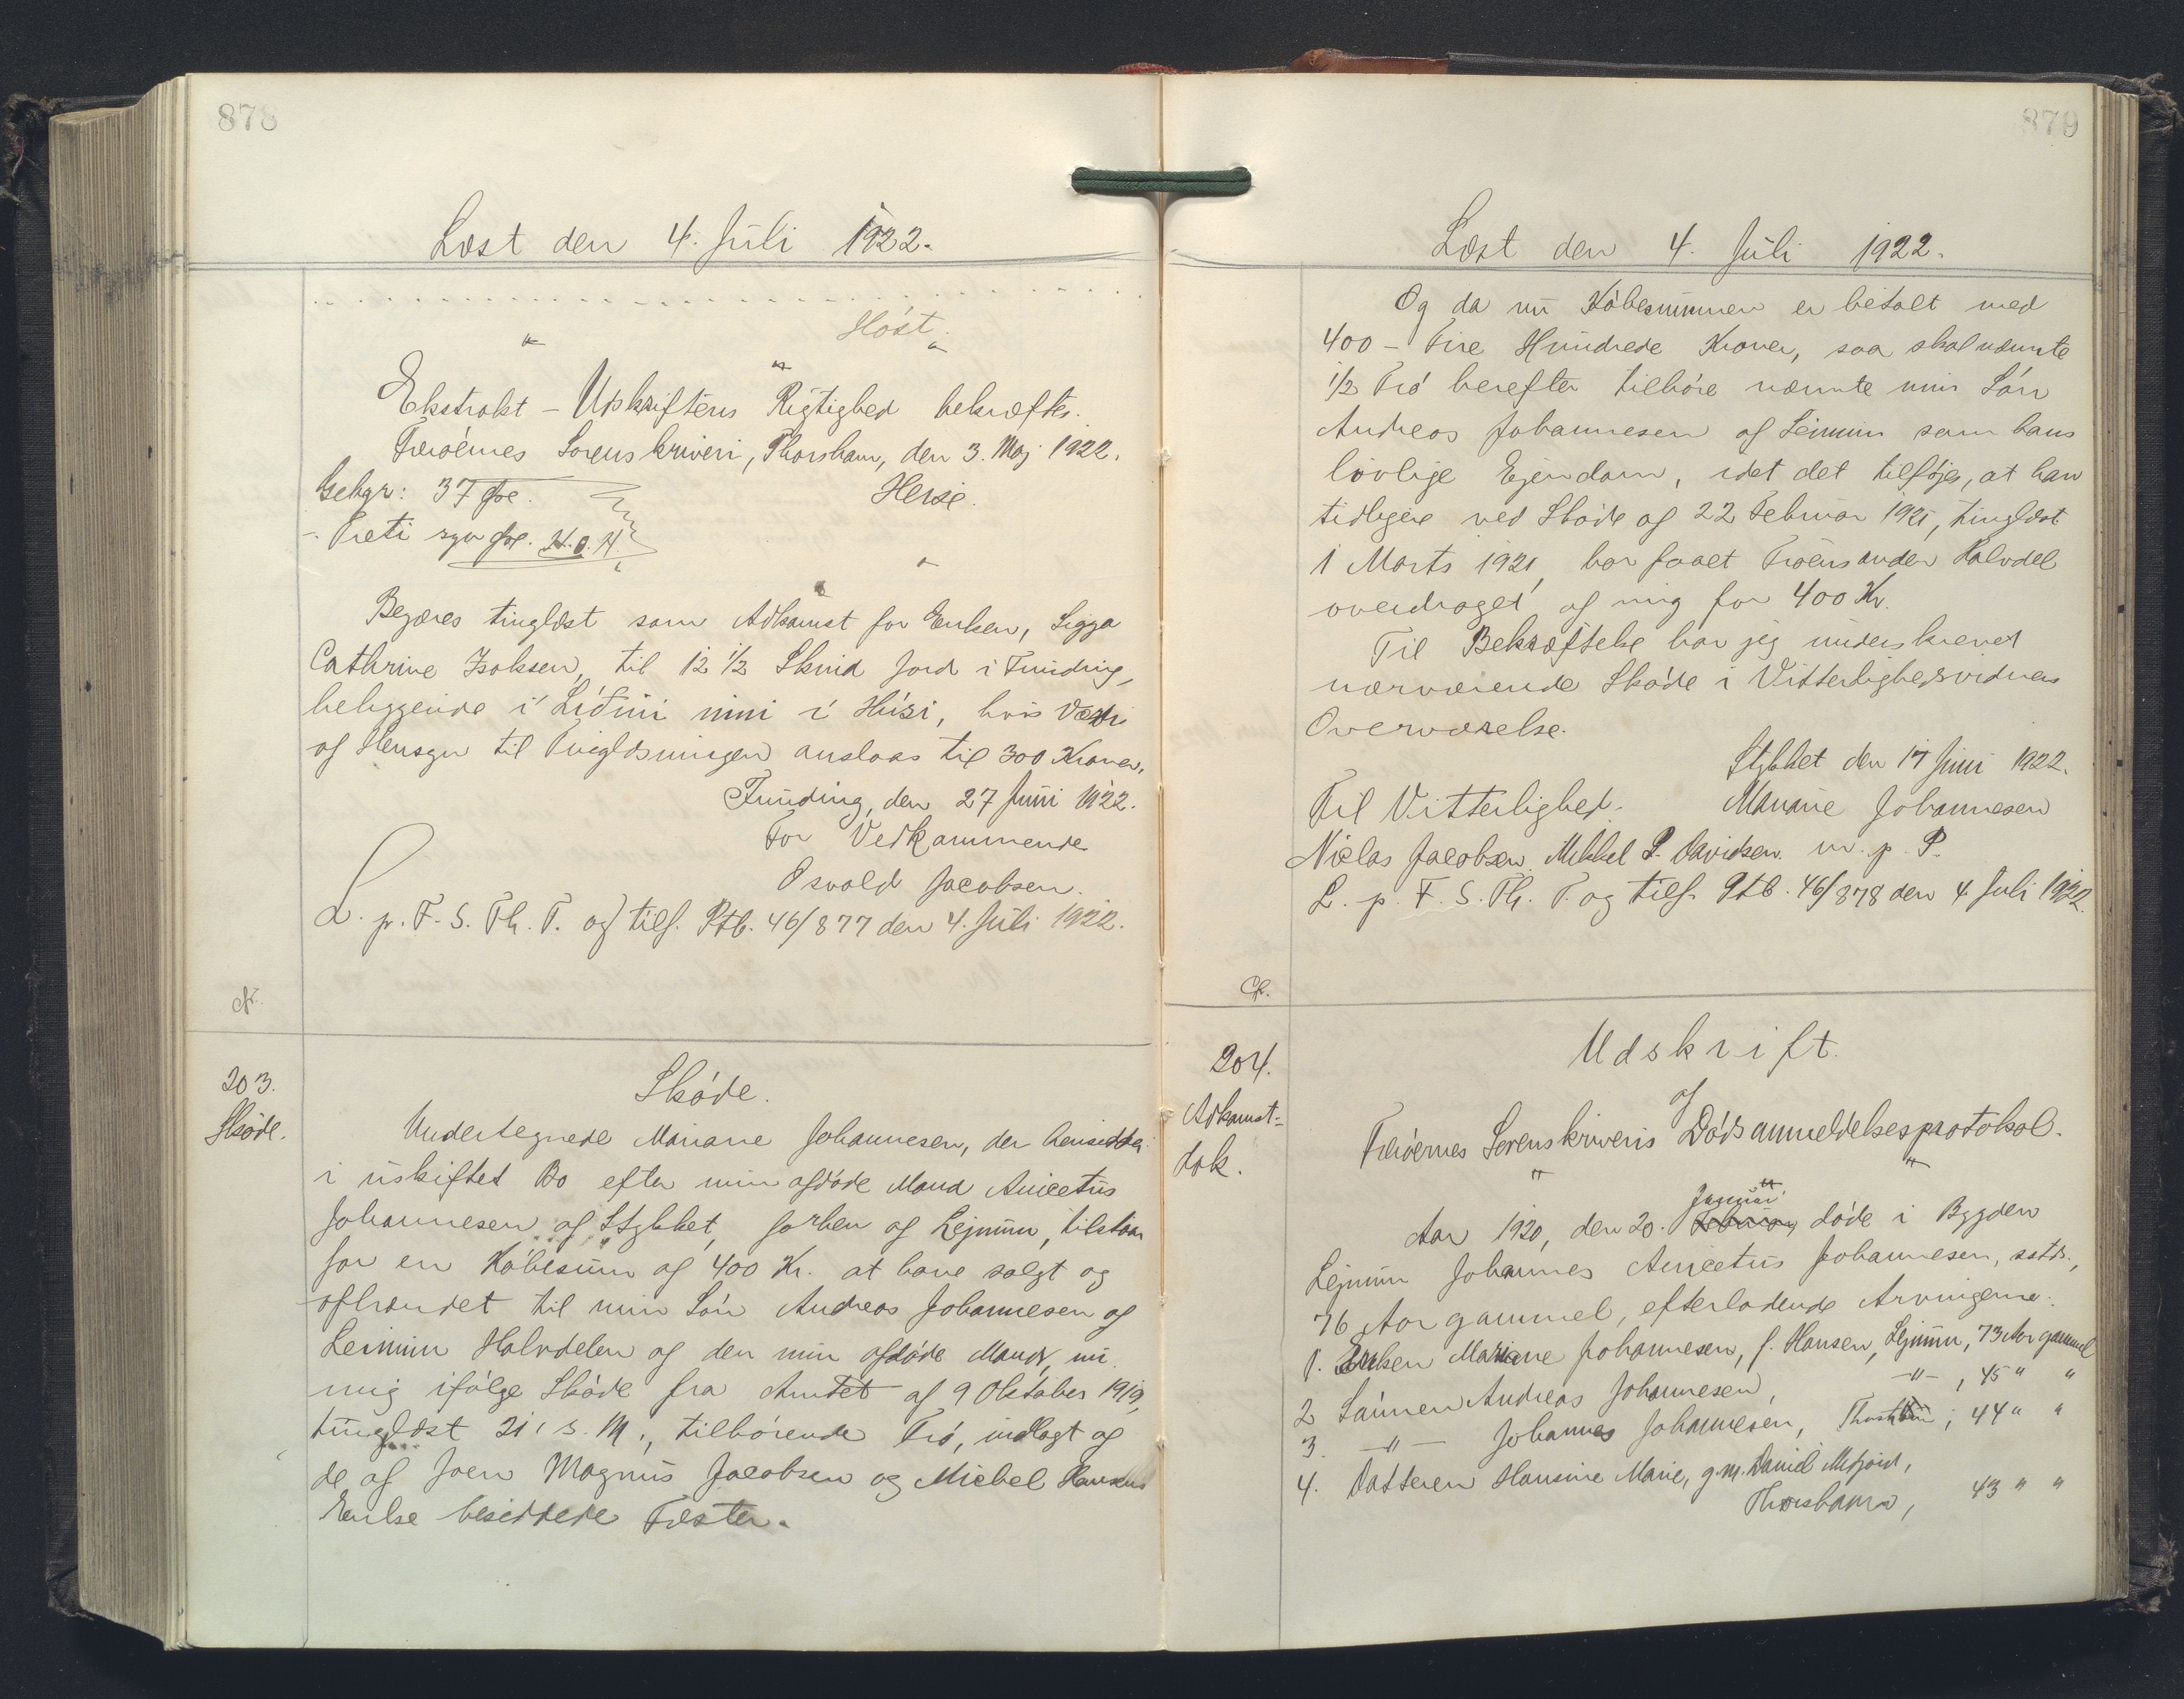 878
Læst den 4. Juli 1922.
Høst.
Ekstrakt-Udskriftens Rigtighed bekræftes.
Færøernes Sorenskriveri, Thorshavn, den 3. Maj 1922.
Gebyr: 37 Øre. Heise.
- Treti syv Øre. 24. 8. 14.
Begæres tinglæst som Adkomst for Enken, Sigga
Cathrine Isaksen, til 12 1/2 Skind Jord i Funding,
beliggende i Líðini inni í Húsi, hvis Værdi
af Hensyn til Tinglæsningen anslaas til 300 Kroner.
Funding, den 27 Juni 1922.
For Vedkommende
Osvald Jacobsen.
L. p. F. S. Th. T. og tilf. Ptb. 46/877 den 4. Juli 1922.
203.
Skøde.
Skøde.
Undertegnede Mariane Johannesen, der hensidder
i uskiftet Bo efter min afdøde Mand Anicetus
Johannesen af Stykket, forhen af Lejnum, tilstaar
for en Købesum af 400 Kr. at have solgt og
afhændet til min Søn Andreas Johannesen af
Leinum Halvdelen af den min afdøde Mand, nu
mig ifølge Skøde fra Amtet af 9 Oktober 1919,
tinglæst 21 s. M., tilhørende Trø, indlagt og
de af Joen Magnus Jacobsen og Michel Hansens
Enke besiddede Fæster.
879
Læst den 4. Juli 1922.
Og da nu Købesummen er betalt med
400 - Fire Hundrede Kroner, saa skal nævnte
1/2 Trø herefter tilhøre nævnte min Søn
Andreas Johannesen af Leinum som hans
lovlige Ejendom, idet det tilføjes, at han
tidligere ved Skøde af 22 Februar 1921, tinglæst
1 Marts 1921, har faaet Trøens anden Halvdel
overdraget af mig for 400 Kr.
Til Bekræftelse har jeg underskrevet
nærværende Skøde i Vitterlighedsvidners
Overværelse.
Stykket den 17 Juni 1922.
Til Vitterlighed: Mariane Johannesen
Niclas Jacobsen. Mikkel P. Davidsen. m. p. P.
L. p. F. S. Th. T. og tilf. Ptb. 46/878 den 4. Juli 1922.
204.
Adkomst-
dok.
Udskrift.
af
Færøernes Sorenskriveris Dødsanmeldelsesprotokol.
Januar
Aar 1920, den 20. Februar, døde i Bygden
Lejnum Johannes Anicetus Johannesen, sstds.,
76 Aar gammel, efterladende Arvingerne:
1. Enken Mariane Johannesen, f. Hansen, Lejnum, 73 Aar gammel
2 Sønnen Andreas Johannesen, -"-, 45 " "
3. -"- Johannes Johannesen, Thorshavn, 44 " "
4. Datteren Hansine Marie, g. m. Daniel Mefjord,
Thorshavn, 43 " "